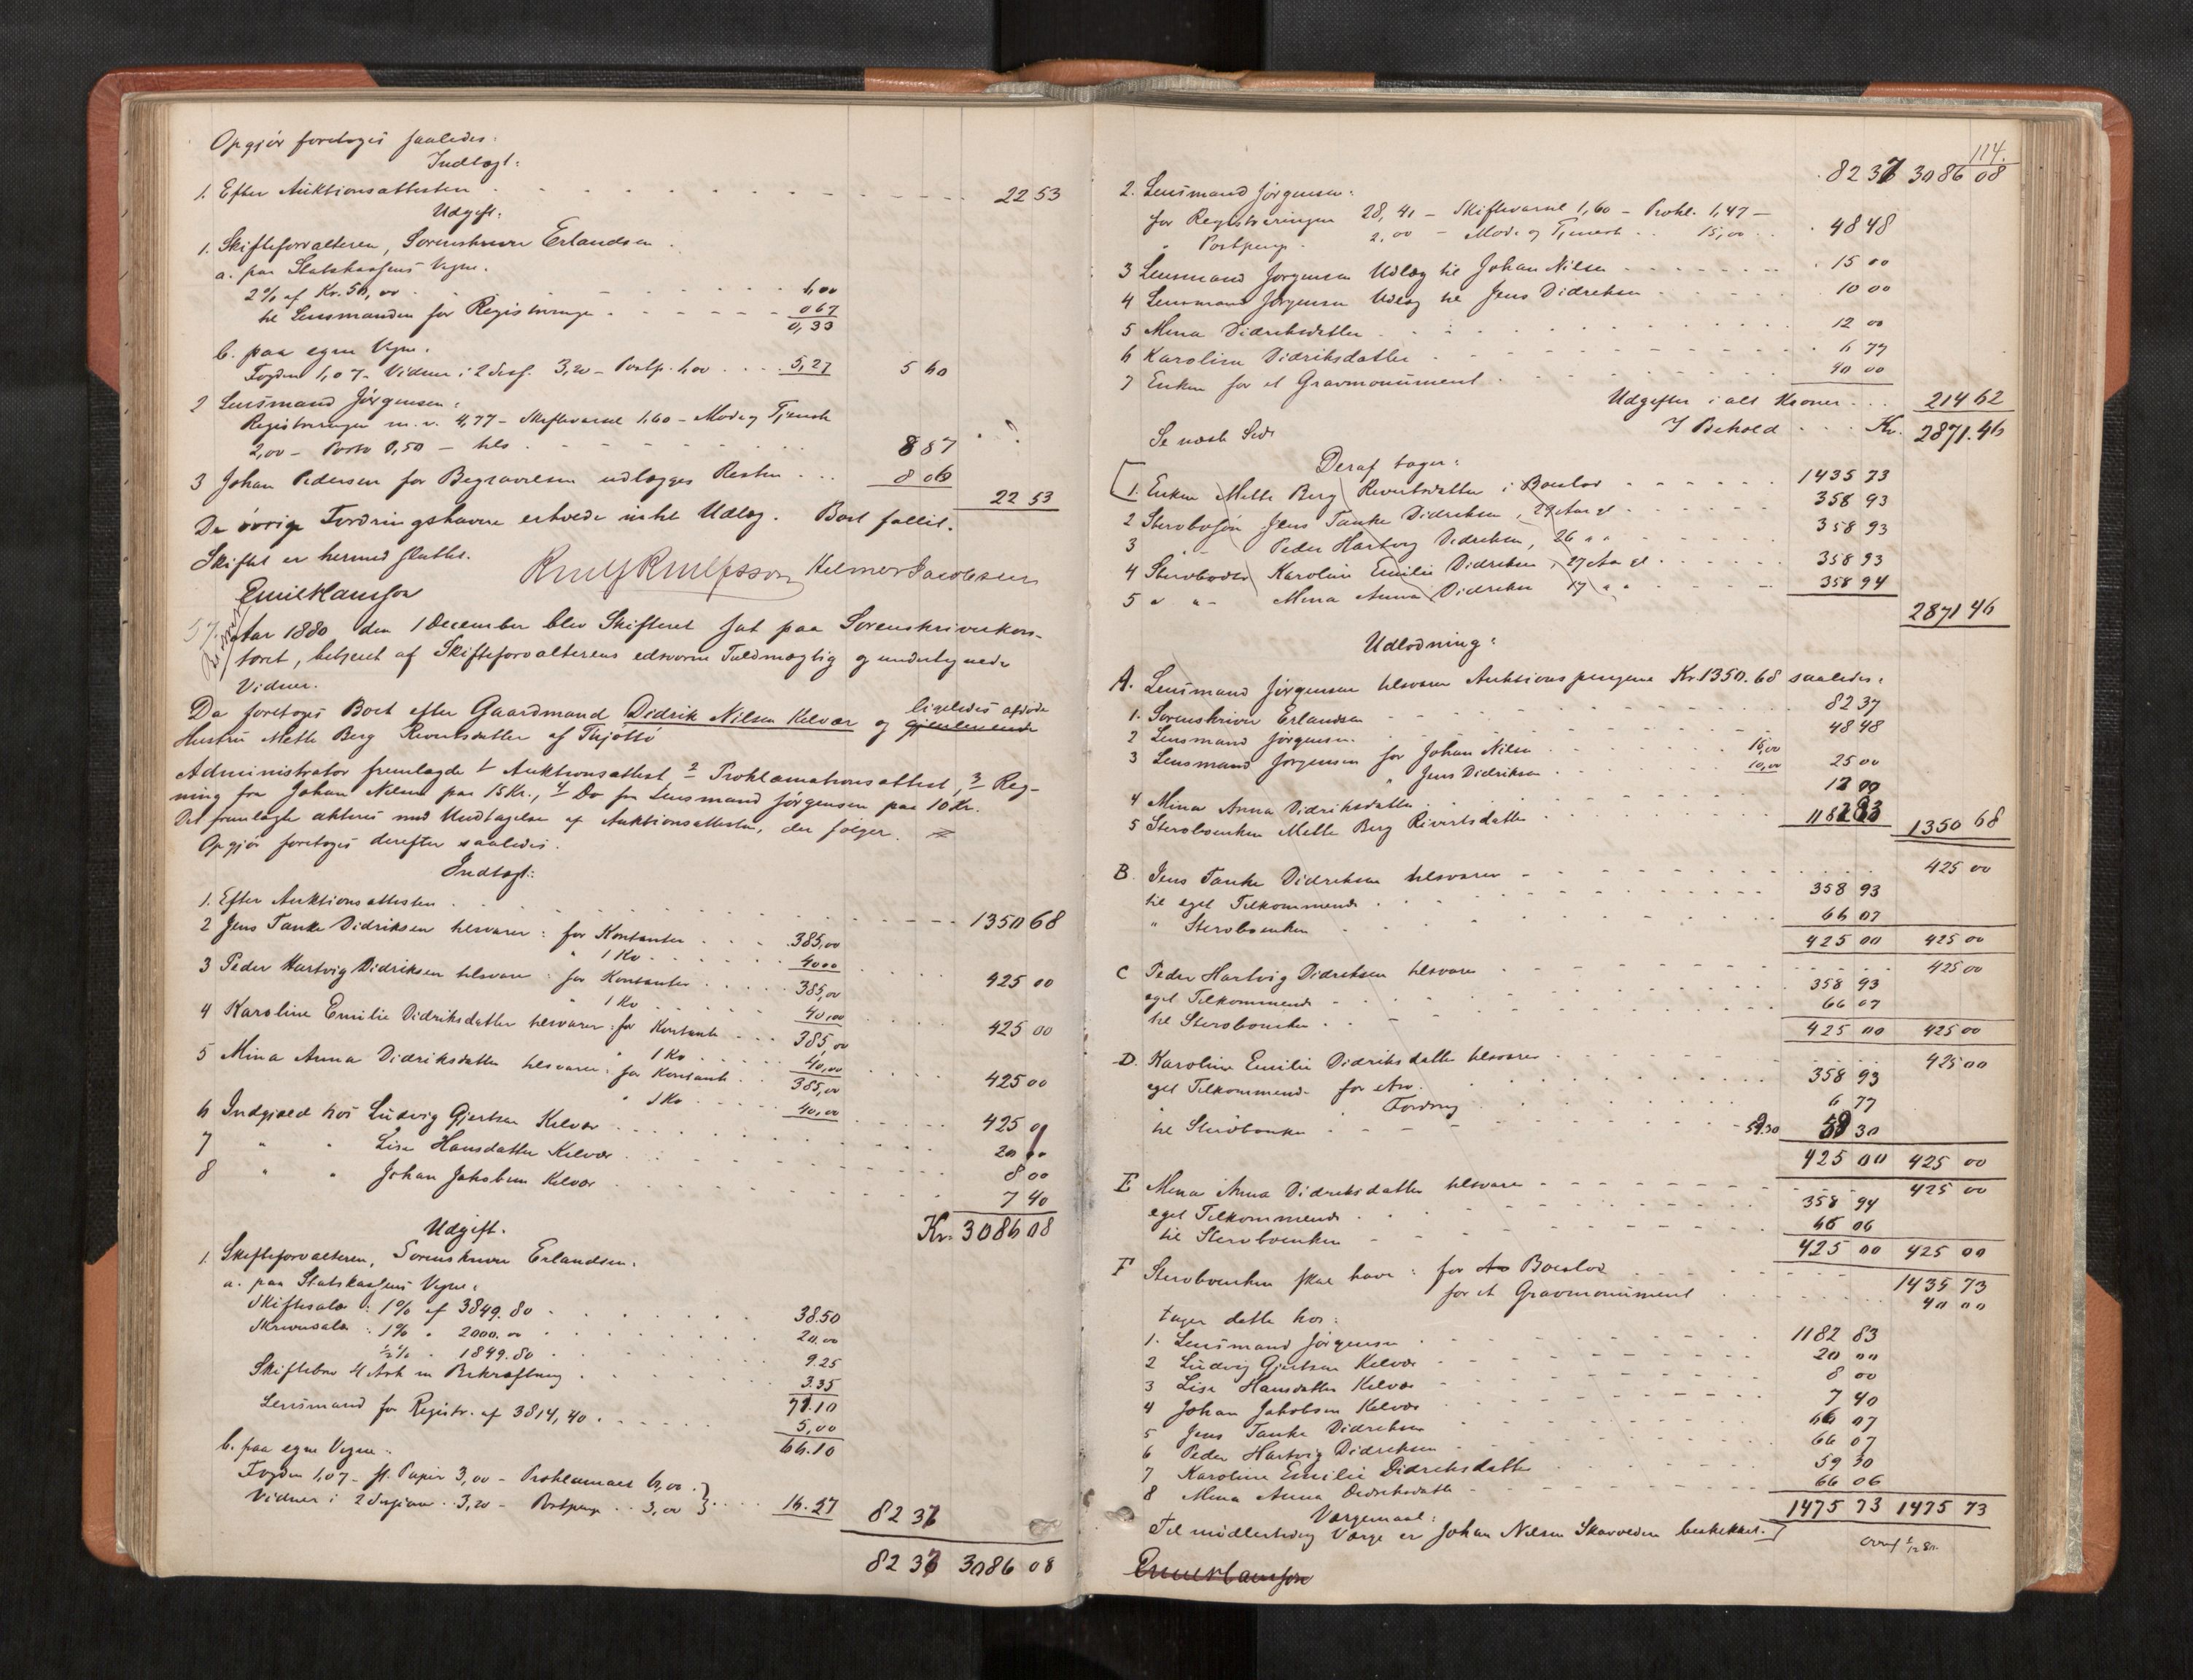 Opgjör foretoges saaledes:
Indtægt:
1. Efter Auktionsattesten 22 53
Udgift:
1. Skifteforvalteren, Sorenskriver Erlandsen
a. paa Statskassens Vegne.
2% af Kr. 50,00 1,00
til Lensmanden for Registrering 0 67
0,33
b. paa egne Vegne.
Fogden 1,07 - Vidner i 2 Sess. 3,20 - Postp. 1,00 5,27 5 60
2 Lensmand Jörgensen:
Registreringen m. v. 4,77 - Skiftevarsel 1,60 - Mode og Tjeneste
2,00 - Porto 0,50 - tils 8 87
3 Johan Pedersen for Begravelsen udlægges Resten 8 06
22 53
De övrige Fordringshavere erholde intet Udlæg. Boet fallit.
Skiftet er hermed sluttet.
Emil Hansson Hilmer Jacobsen
57. Aar 1880 den 1 December blev Skifteret sat paa Sorenskriverkon-
toret, betjent af Skifteforvalterens edsvorne Fuldmægtig og undertegnede
Vidner.
Da foretoges Boet efter Gaardmand Didrik Nilsen Kelvær og gjenlevende ligeledes afdøde
Hustru Mette Berg Revertsdatter af Thjøttö
Administrator fremlagde 1 Auktionsattest, 2 Proklamationsattest, 3 Reg-
ning fra Johan Nilsen paa 15 Kr., 4 Do fra Lensmand Jörgensen paa 10 Kr.
Det fremlagte akteres med Undtagelse af Auktionsattesten, der følger.
Opgjör foretoges derefter saaledes.
Indtægt:
1. Efter Auktionsattesten 1350 68
2 Jens Tanke Didriksen tilsvarer: for Kontanter 385,00
" 1 Ko 40 00
425 00
3 Peder Hartvig Didriksen tilsvarer: for Kontanter 385,00
" 1 Ko 40,00
425 00
4 Karoline Emilie Didriksdatter tilsvarer: for Kontant 385,00
" 1 Ko 40,00
425 00
5 Mina Anna Didriksdatter tilsvarer: for Kontant 385,00
" 1 Ko 40,00
425 00
6 Indgjæld hos Ludvig Gjertsen Kelvær 20 00
7 " " Lise Hansdatter Kelvær 8 00
8 " " Johan Jakobsen Kelvær 7 40
Kr. 3086 08
Udgift.
1. Skifteforvalteren, Sorenskriver Erlandsen.
a. paa Statskassens Vegne:
Skiftesalær: 1% af 3849.80 38.50
Skriversalær: 1% " 2000.00 20.00
½% " 1849.80 9.25
Skiftebrev 4 Ark m Bekræftning 3.35
71.10
Lensmand for Registr. af 3814,40 5,00
66.10
b. paa egne Vegne:
Fogden 1,07 - st. Papir 3,00 - Proklamaet 6,00
Vidner i 2 Sessioner 3,20 - Postpenge 3,00 16.27 82 37
82 37 3086 08
114.
82 37 3086 08
2. Lensmand Jörgensen:
for Registreringen 28,41 - Skiftevarsel 1,60 - Prokl. 1,47 -
" Postpenge 2,00 - Mode og Tjeneste 15,00 48 48
3 Lensmand Jörgensen Udlæg til Johan Nilsen 15 00
4 Lensmand Jörgensen Udlæg til Jens Didriksen 10 00
5 Mina Didriksdatter 12 00
6 Karoline Didriksdatter 6 77
7 Enken for et Gravmonument 40 00
Udgifter i alt Kroner 214 62
I Behold Kr. 2871.46
Se næste Side
Deraf tager:
1. Enken Mette Berg Revertsdatter i Boeslod 1435 73
2 Stervbosøn Jens Tanke Didriksen, 29 Aar gl 358 93
3 " Peder Hartvig Didriksen, 26 " " 358 93
4 Stervbodatter Karoline Emilie Didriksen, 27 Aar gl 358 93
5 " " Mina Anna Didriksen 17 " " 358 94
2871 46
Udlodning:
A. Lensmand Jörgensen tilsvarer Auktionspengene Kr. 1350.68 saaledes:
1. Sorenskriver Erlandsen 82 37
2 Lensmand Jörgensen 48 48
3 Lensmand Jörgensen for Johan Nilsen 15,00
" Jens Didriksen 10,00 25 00
4 Mina Anna Didriksdatter 12 00
5 Stervboenken Mette Berg Rivertsdatter 1182 83 1350 68
B. Jens Tanke Didriksen tilsvarer 425 00
til eget Tilkommende 358 93
" Stervboenken 66 07
425 00 425 00
C Peder Hartvig Didriksen tilsvarer 425 00
eget Tilkommende 358 93
til Stervboenken 66 07
425 00 425 00
D. Karoline Emilie Didriksdatter tilsvarer 425 00
eget Tilkommende for Arv 358 93
Fordring 6 77
til Stervboenken 59.30 59 30
425 00 425 00
E Mina Anna Didriksdatter tilsvarer 425 00
eget Tilkommende 358 94
til Stervboenken 66 06
425 00 425 00
F Stervboenken skal have: for Boeslod 1435 73
for et Gravmonument 40 00
tager dette hos:
1. Lensmand Jörgensen 1182 83
2 Ludvig Gjertsen Kelvær 20 00
3 Lise Hansdatter Kelvær 8 00
4 Johan Jakobsen Kelvær 7 40
5 Jens Tanke Didriksen 66 07
6 Peder Hartvig Didriksen 66 07
7 Karoline Emilie Didriksdatter 59 30
8 Mina Anna Didriksdatter 66 06
1475 73 1475 73
Værgemaal:
Til midlertidig Værge er Johan Nilsen beskikket.
Emil Hansson